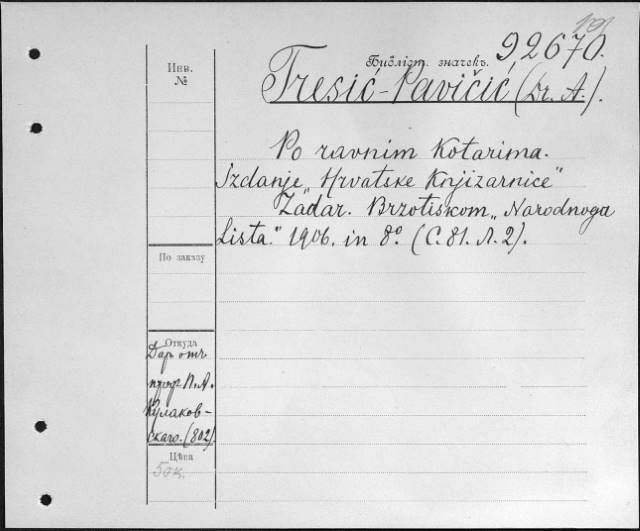 Библіт. значекъ. 92670.
Инв.
№
Tresić-Pavičić (Dr. A.).
Po ravnim Kotarima.
Izdanje „Hrvatske Knjižarnice"
Zadar. Brzotiskom „Narodnoga
Lista." 1906. in 8º. (С. 81. Л. 2).
По заказу
Откуда
Даръ отъ
проф. П. А.
Кулаков-
скаго. (802).
Цѣна
50 к.